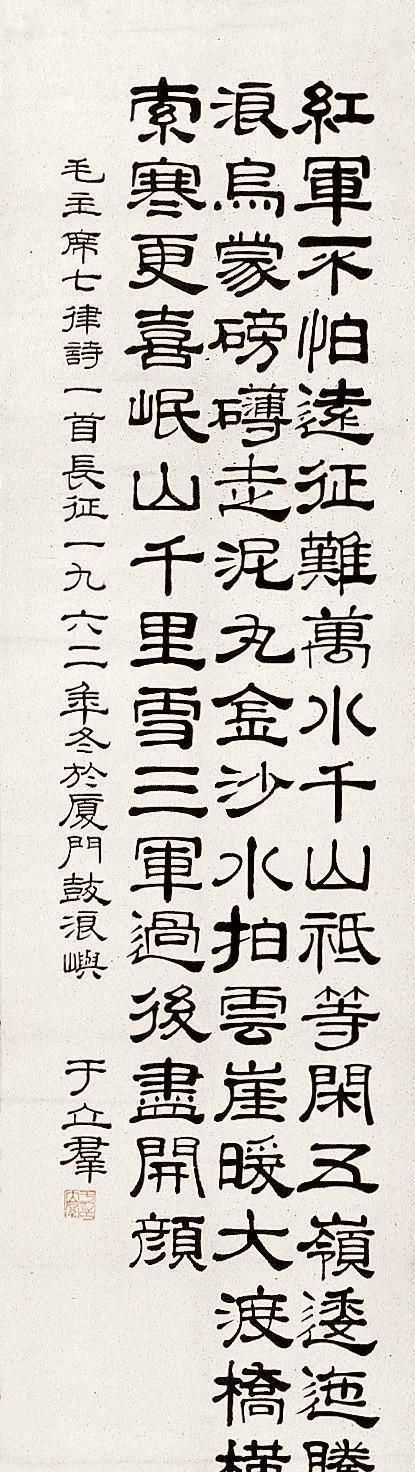 紅軍不怕遠征難萬水千山祗等閑五嶺逶迤騰
浪烏蒙磅礴走泥丸金沙水拍雲崖暖大渡橋橫
索寒更喜岷山千里雪三軍過後盡開顏
毛主席七律詩一首長征一九六二年冬於厦門鼓浪嶼
于立羣